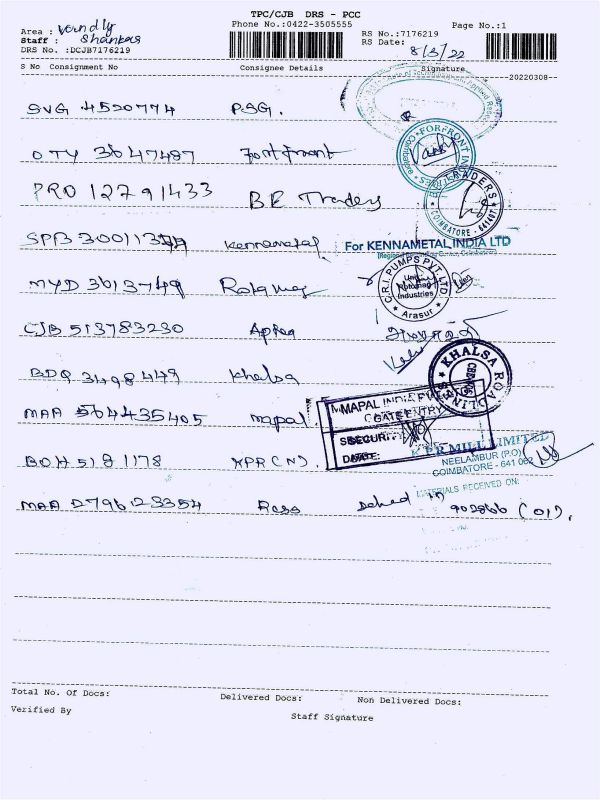 TPC/CJB DRS - PCC
Phone No.:0422-3505555
Page No.:1
Area :
Staff : Shankar
DRS No. :DCJB7176219
RS No.:7176219
RS Date: 8/3/22
S No Consignment No Consignee Details Signature
20220308
SVG 4520774 PSG.
OTY 3647487
FORFRONT
PRO 12791433 BR Traders
TRADERS
COIMBATORE - 641407
SPB Kennametal
For KENNAMETAL INDIA LTD
MYD 3613749
C.R.I. PUMPS PVT. LTD.
Unit
Rotomag
Industries
Arasur
CJB 513783230
BDQ 3498449 Khalsa
KHALSA ROADLINES
CBE
MAA 564435405 mapal
MAPAL INDIA
GATE ENTRY
SECURITY
DATE:
BOH 5181178 KPR (N).
K P R MILL LIMITED
NEELAMBUR (P.O)
COIMBATORE - 641 062
MATERIALS RECEIVED ON:
MAA 279623354 902866 (01),
Total No. Of Docs: Delivered Docs: Non Delivered Docs:
Verified By
Staff Signature